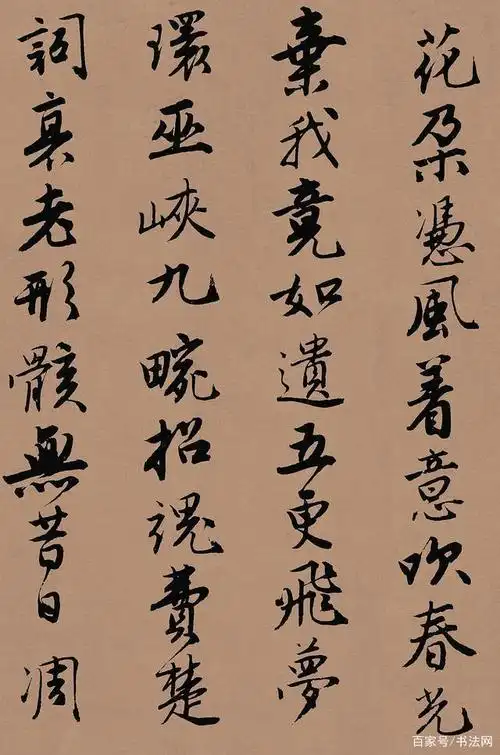 花朶憑風着意吹春光
棄我竟如遺五更飛夢
環巫峽九畹招魂費楚
詞衰老形骸無昔日凋
百家号/书法网